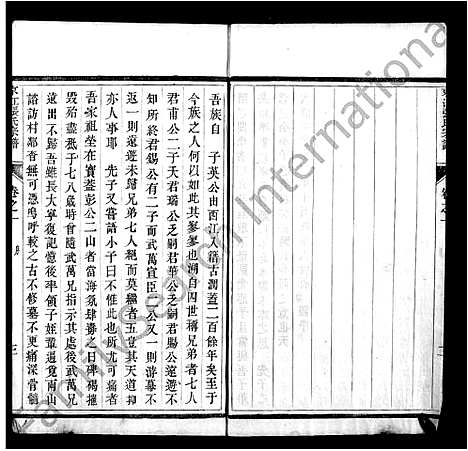 吾族自　子英公由西江入籍古潤蓋二百餘年矣至于
今族之人何以如此其寥寥也溯自四世稱兄弟者七人
君甫公二子天君瑞公乏嗣君華公乏嗣君賜公遠遊不
知所終君錫公有二子而武萬宣臣二公又一則游墓不
返一則遠遊未歸兄弟七人絕而莫繼者五豈其天道抑
亦人事耶　先子又嘗語小子曰不惟此也尤可痛者
吾家祖塋在寶蓋彭公二山者當海氛肆毒之日碑碣摧
毀殆盡祗于七八歲時會隨武萬兄指示其處後武萬兄
遠出不歸吾雖長大寧復記憶後率領子姪輩遍覓南山
諮訪村鄰杳無可憑嗚呼較之古不修墓不更痛深骨髓
京江張氏宗譜
卷之一
三
FamilySearch International